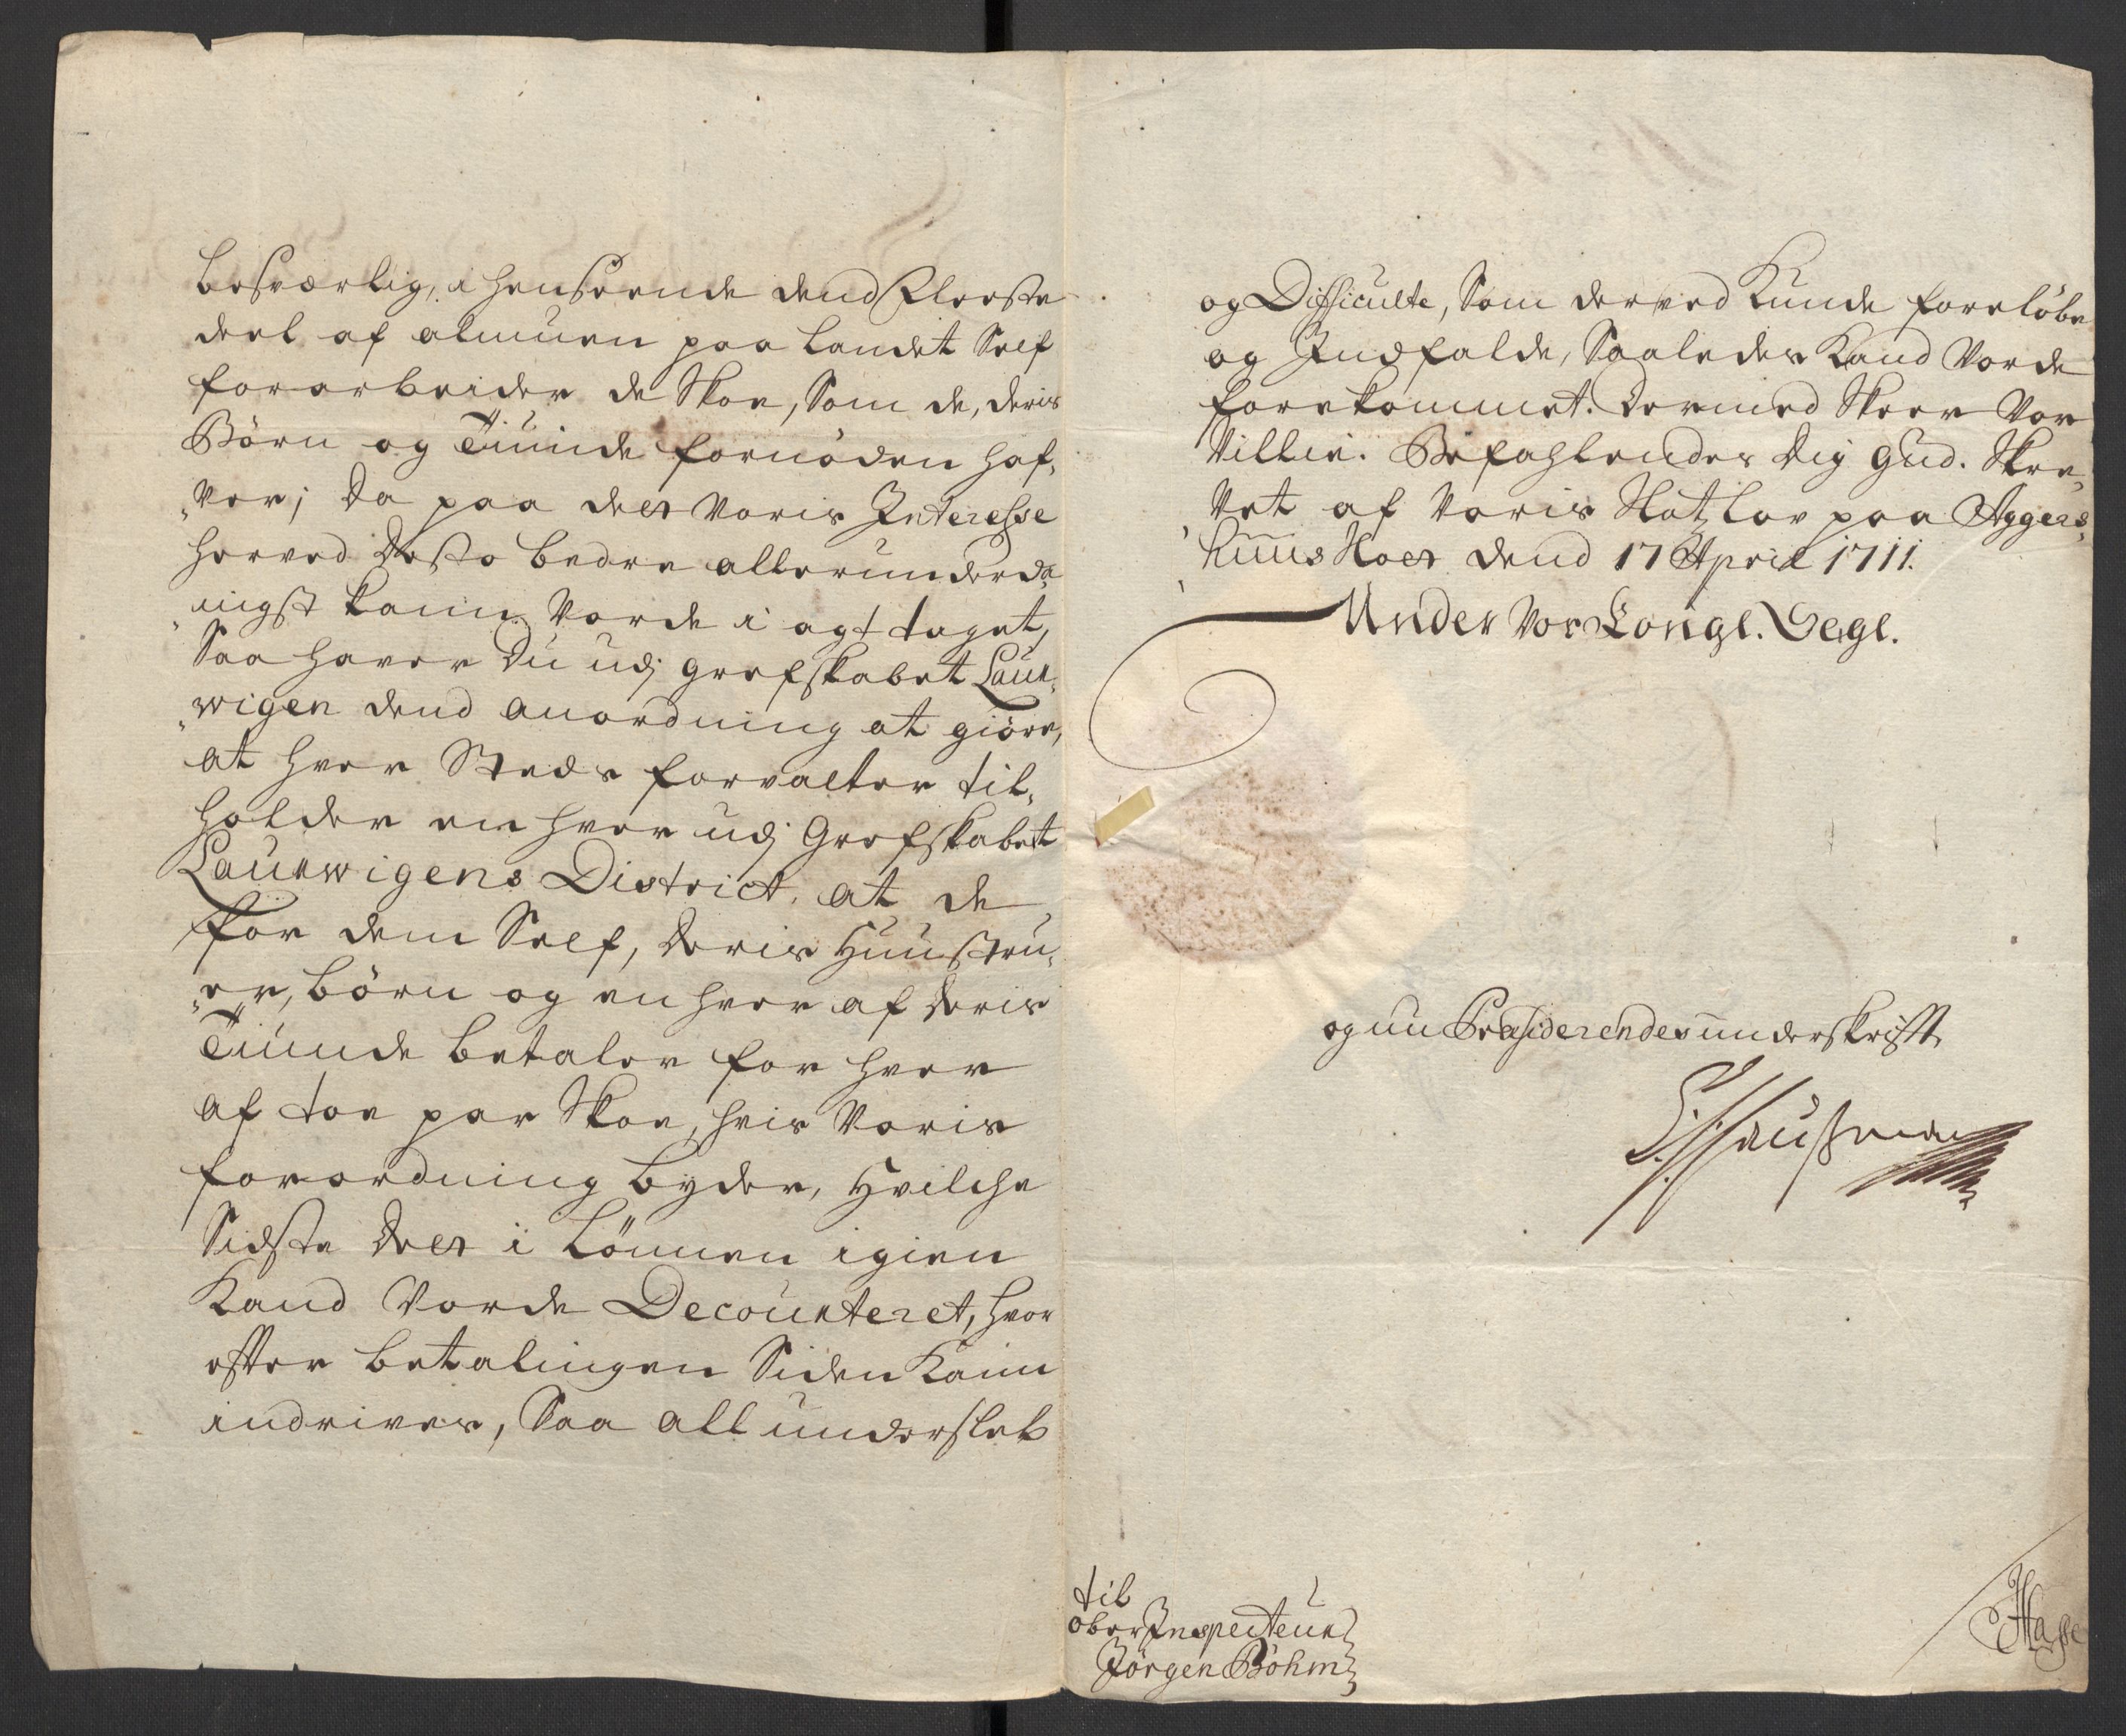 besværlig, i henseende dend Fleeste
deel af almuen paa Landet Self
forarbeider de Skoe, Som de, deris
Börn og Tiunde fornöden haf,
„ver; Da paa det Voris Interesse
herved desto bedre allerunderda,
„nigst kann Vorde i agt taget,
Saa haver Du udj grefskabet Laur,
„wigen dend anordning at giöre,
at hver Steds forvalter til,
holder en hver udj Grefskabet
Laurwigens District, at de
for dem Self, deris Huustru,
„er, börn og en hver af deris
Tiunde betaler for hver
af toe par Skoe, hvis Voris
forordning byder, Hvilche
Sidste det i Lönnen igien
Kand Vorde Decourteret, hvor
effter betalingen Siden Kann
indrives, Saa all undersleb
og Difficulte, Som derved Kunde foreløbe
og Indfalde, Saaledes Kand Vorde
forekommet. Dermed Skeer Vor
Villie. Befahlendes dig Gud. Skre,
„vet af Voris Slotzlov paa Aggers,
„huus Sloet dend 17 April 1711.
Under Vor Kongl. Segl.
og nu Præsiderendes underskrifft
H. Hausman
til
ober Inspecteur
Jörgen Böhm